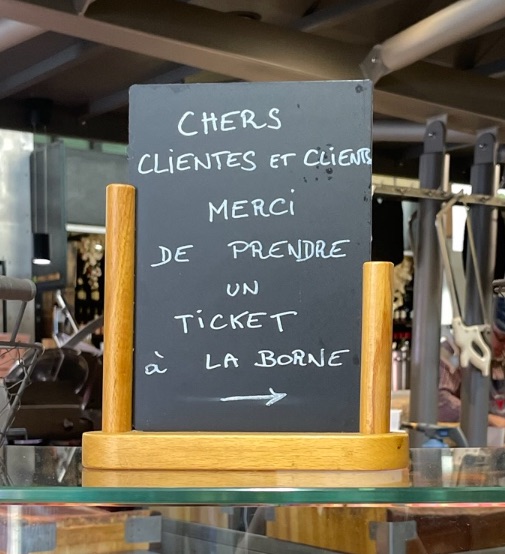 CHERS
CLIENTES ET CLIENTS
MERCI
DE PRENDRE
UN
TICKET
à LA BORNE
→